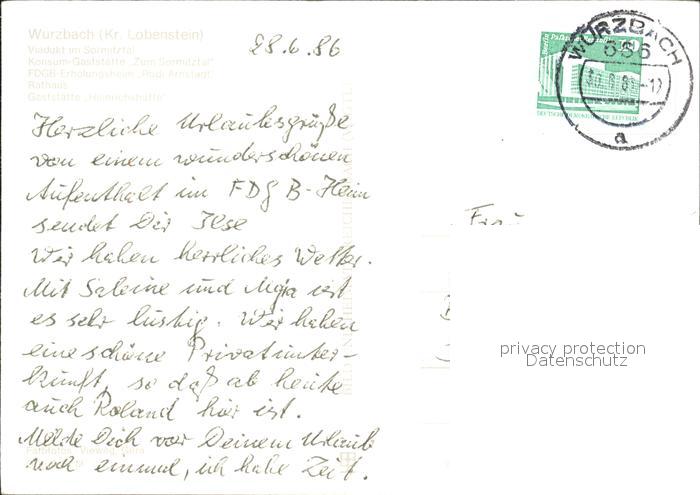 Wurzbach (Kr. Lobenstein)
Viadukt im Sormitztal
Konsum-Gaststätte "Zum Sormitztal"
FDGB-Erholungsheim "Rudi Arnstadt"
Rathaus
Gaststätte "Heinrichshütte"
28.6.86
WURZBACH
656
a
Herzliche Urlaubsgrüße
von einem wunderschönen
Aufenthalt im FDGB-Heim
sendet Dir Ilse
Wir haben herrliches Wetter.
Mit Sabine und Mgia ist
es sehr lustig. Wir haben
eine schöne Privatunter-
kunft, so daß ab heute
auch Roland hier ist.
Melde Dich vor Deinem Urlaub
noch einmal, ich habe Zeit.
Frau
privacy protection
Datenschutz